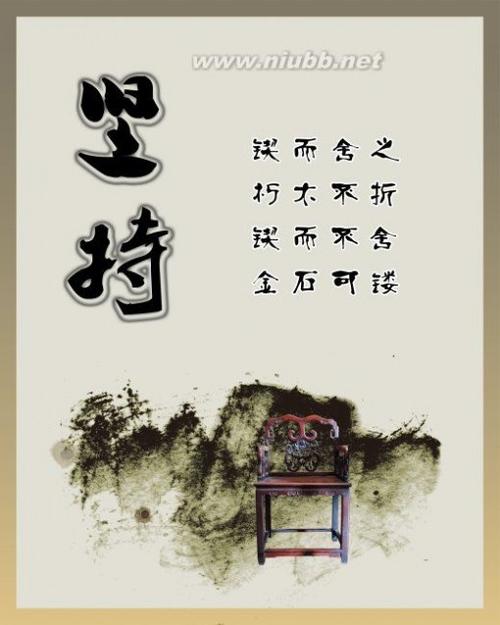 www.niubb.net
坚持
锲而舍之
朽太不折
锲而不舍
金石可镂